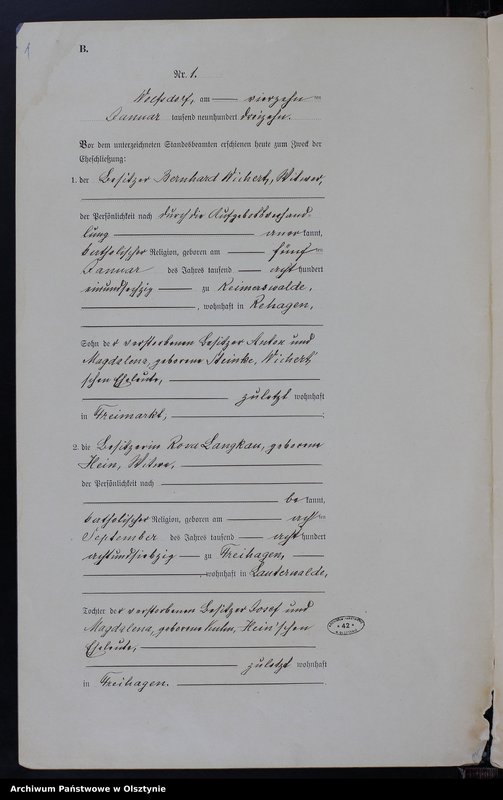 B.
Nr. 1.
am vierzehnten
Januar tausend neunhundert dreizehn.
Vor dem unterzeichneten Standesbeamten erschienen heute zum Zweck der
Eheschließung:
1. der Besitzer Bernhard Wichert, Witwer,
der Persönlichkeit nach durch die Aufgebotsverhand-
lung anerkannt,
katholischer Religion, geboren am fünften
Januar des Jahres tausend achthundert
einundsechzig zu Reimerswalde,
, wohnhaft in Rehagen,
Sohn der verstorbenen Besitzer Anton und
Magdalena, geborene Steinke, Wichert'
schen Eheleute,
zuletzt wohnhaft
in Freimarkt,
2. die Besitzerin Rosa Langkau, geborene
Hein, Witwe,
der Persönlichkeit nach
bekannt,
katholischer Religion, geboren am achten
September des Jahres tausend achthundert
achtundsiebzig zu Freihagen,
, wohnhaft in Lauterwalde,
Tochter der verstorbenen Besitzer Josef und
Magdalena, geborene Hein'schen
Eheleute,
zuletzt wohnhaft
in Freihagen.
* 42 *
Archiwum Państwowe w Olsztynie